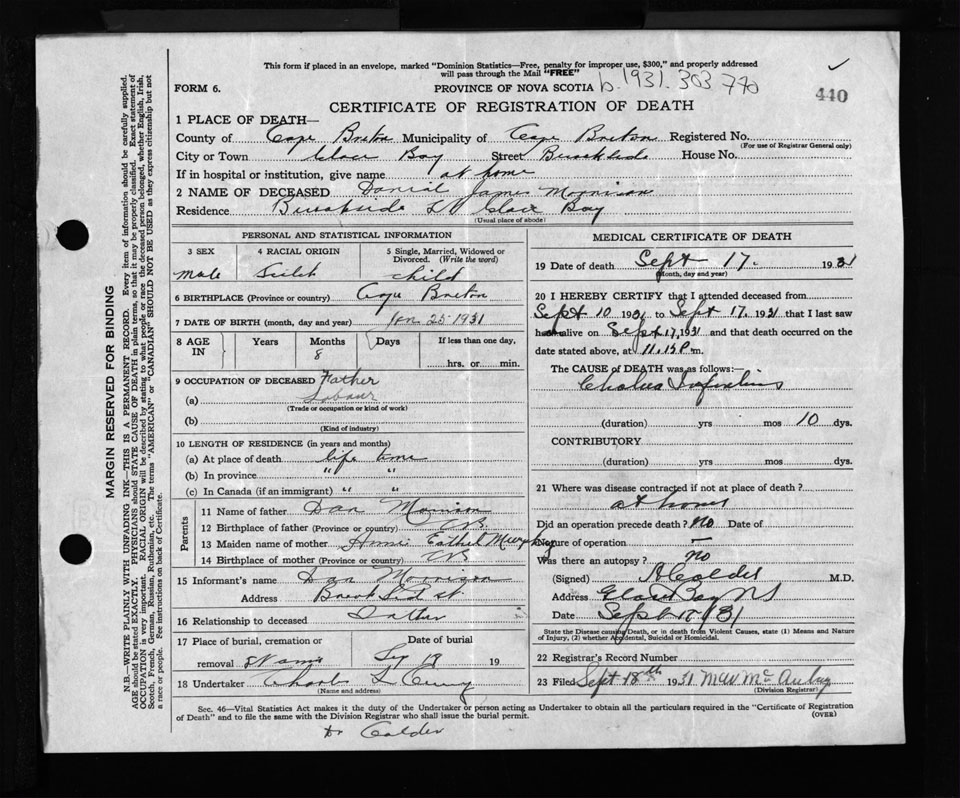 This form if placed in an envelope, marked "Dominion Statistics—Free, penalty for improper use, $300," and properly addressed
will pass through the Mail "FREE"
FORM 6. PROVINCE OF NOVA SCOTIA b. 1931. 303 770
440
CERTIFICATE OF REGISTRATION OF DEATH
1 PLACE OF DEATH—
County of Cape Breton Municipality of Cape Breton Registered No.
(For use of Registrar General only)
City or Town Glace Bay Street Brookside House No.
If in hospital or institution, give name at home
2 NAME OF DECEASED Daniel James Morrison
Residence Brookside St Glace Bay
(Usual place of abode)
PERSONAL AND STATISTICAL INFORMATION
3 SEX 4 RACIAL ORIGIN 5 Single, Married, Widowed or
Divorced. (Write the word)
Male child
6 BIRTHPLACE (Province or country) Cape Breton
7 DATE OF BIRTH (month, day and year) Jan 25 1931
8 AGE IN Years Months Days If less than one day,
8
hrs. or min.
9 OCCUPATION OF DECEASED Father
(a) Labour
(Trade or occupation or kind of work)
(b)
(Kind of industry)
10 LENGTH OF RESIDENCE (in years and months)
(a) At place of death life time
(b) In province " "
(c) In Canada (if an immigrant) " "
Parents
11 Name of father Dan Morrison
12 Birthplace of father (Province or country) CB
13 Maiden name of mother Ethel Murphy
14 Birthplace of mother (Province or country) CB
15 Informant's name Dan Morrison
Address Brook Side st.
16 Relationship to deceased Father
17 Place of burial, cremation or Date of burial
removal 19
18 Undertaker
(Name and address)
MEDICAL CERTIFICATE OF DEATH
19 Date of death Sept 17. 1931
(Month, day and year)
20 I HEREBY CERTIFY that I attended deceased from
Sept 10 1931 to Sept 17, 1931 that I last saw
h alive on Sept 17, 1931 and that death occurred on the
date stated above, at 11.15 P.m.
The CAUSE OF DEATH was as follows:—
Cholera Infantum
(duration) yrs mos 10 dys.
CONTRIBUTORY
(duration) yrs. mos. dys.
21 Where was disease contracted if not at place of death?
at home
Did an operation precede death? No Date of
Nature of operation —
Was there an autopsy? no
(Signed) A Calder M.D.
Address Glace Bay NS
Date Sept 18/31
State the Disease causing Death, or in death from Violent Causes, state (1) Means and Nature
of Injury, (2) whether Accidental, Suicidal or Homicidal.
22 Registrar's Record Number
23 Filed Sept 18th 1931
(Division Registrar)
Sec. 46—Vital Statistics Act makes it the duty of the Undertaker or person acting as Undertaker to obtain all the particulars required in the "Certificate of Registration
of Death" and to file the same with the Division Registrar who shall issue the burial permit.
(OVER)
Dr Calder
MARGIN RESERVED FOR BINDING
N.B.—WRITE PLAINLY WITH UNFADING INK—THIS IS A PERMANENT RECORD. Every item of information should be carefully supplied.
AGE should be stated EXACTLY. PHYSICIANS should STATE CAUSE OF DEATH in plain terms, so that it may be properly classified. Exact statement of
OCCUPATION is very important. RACIAL ORIGIN will be described by stating to what people or race the deceased person belonged, whether English, Irish,
Scotch, French, German, Russian, Ruthenian, etc. The terms "AMERICAN" or "CANADIAN" SHOULD NOT BE USED as they express citizenship but not
a race or people. See instructions on back of Certificate.